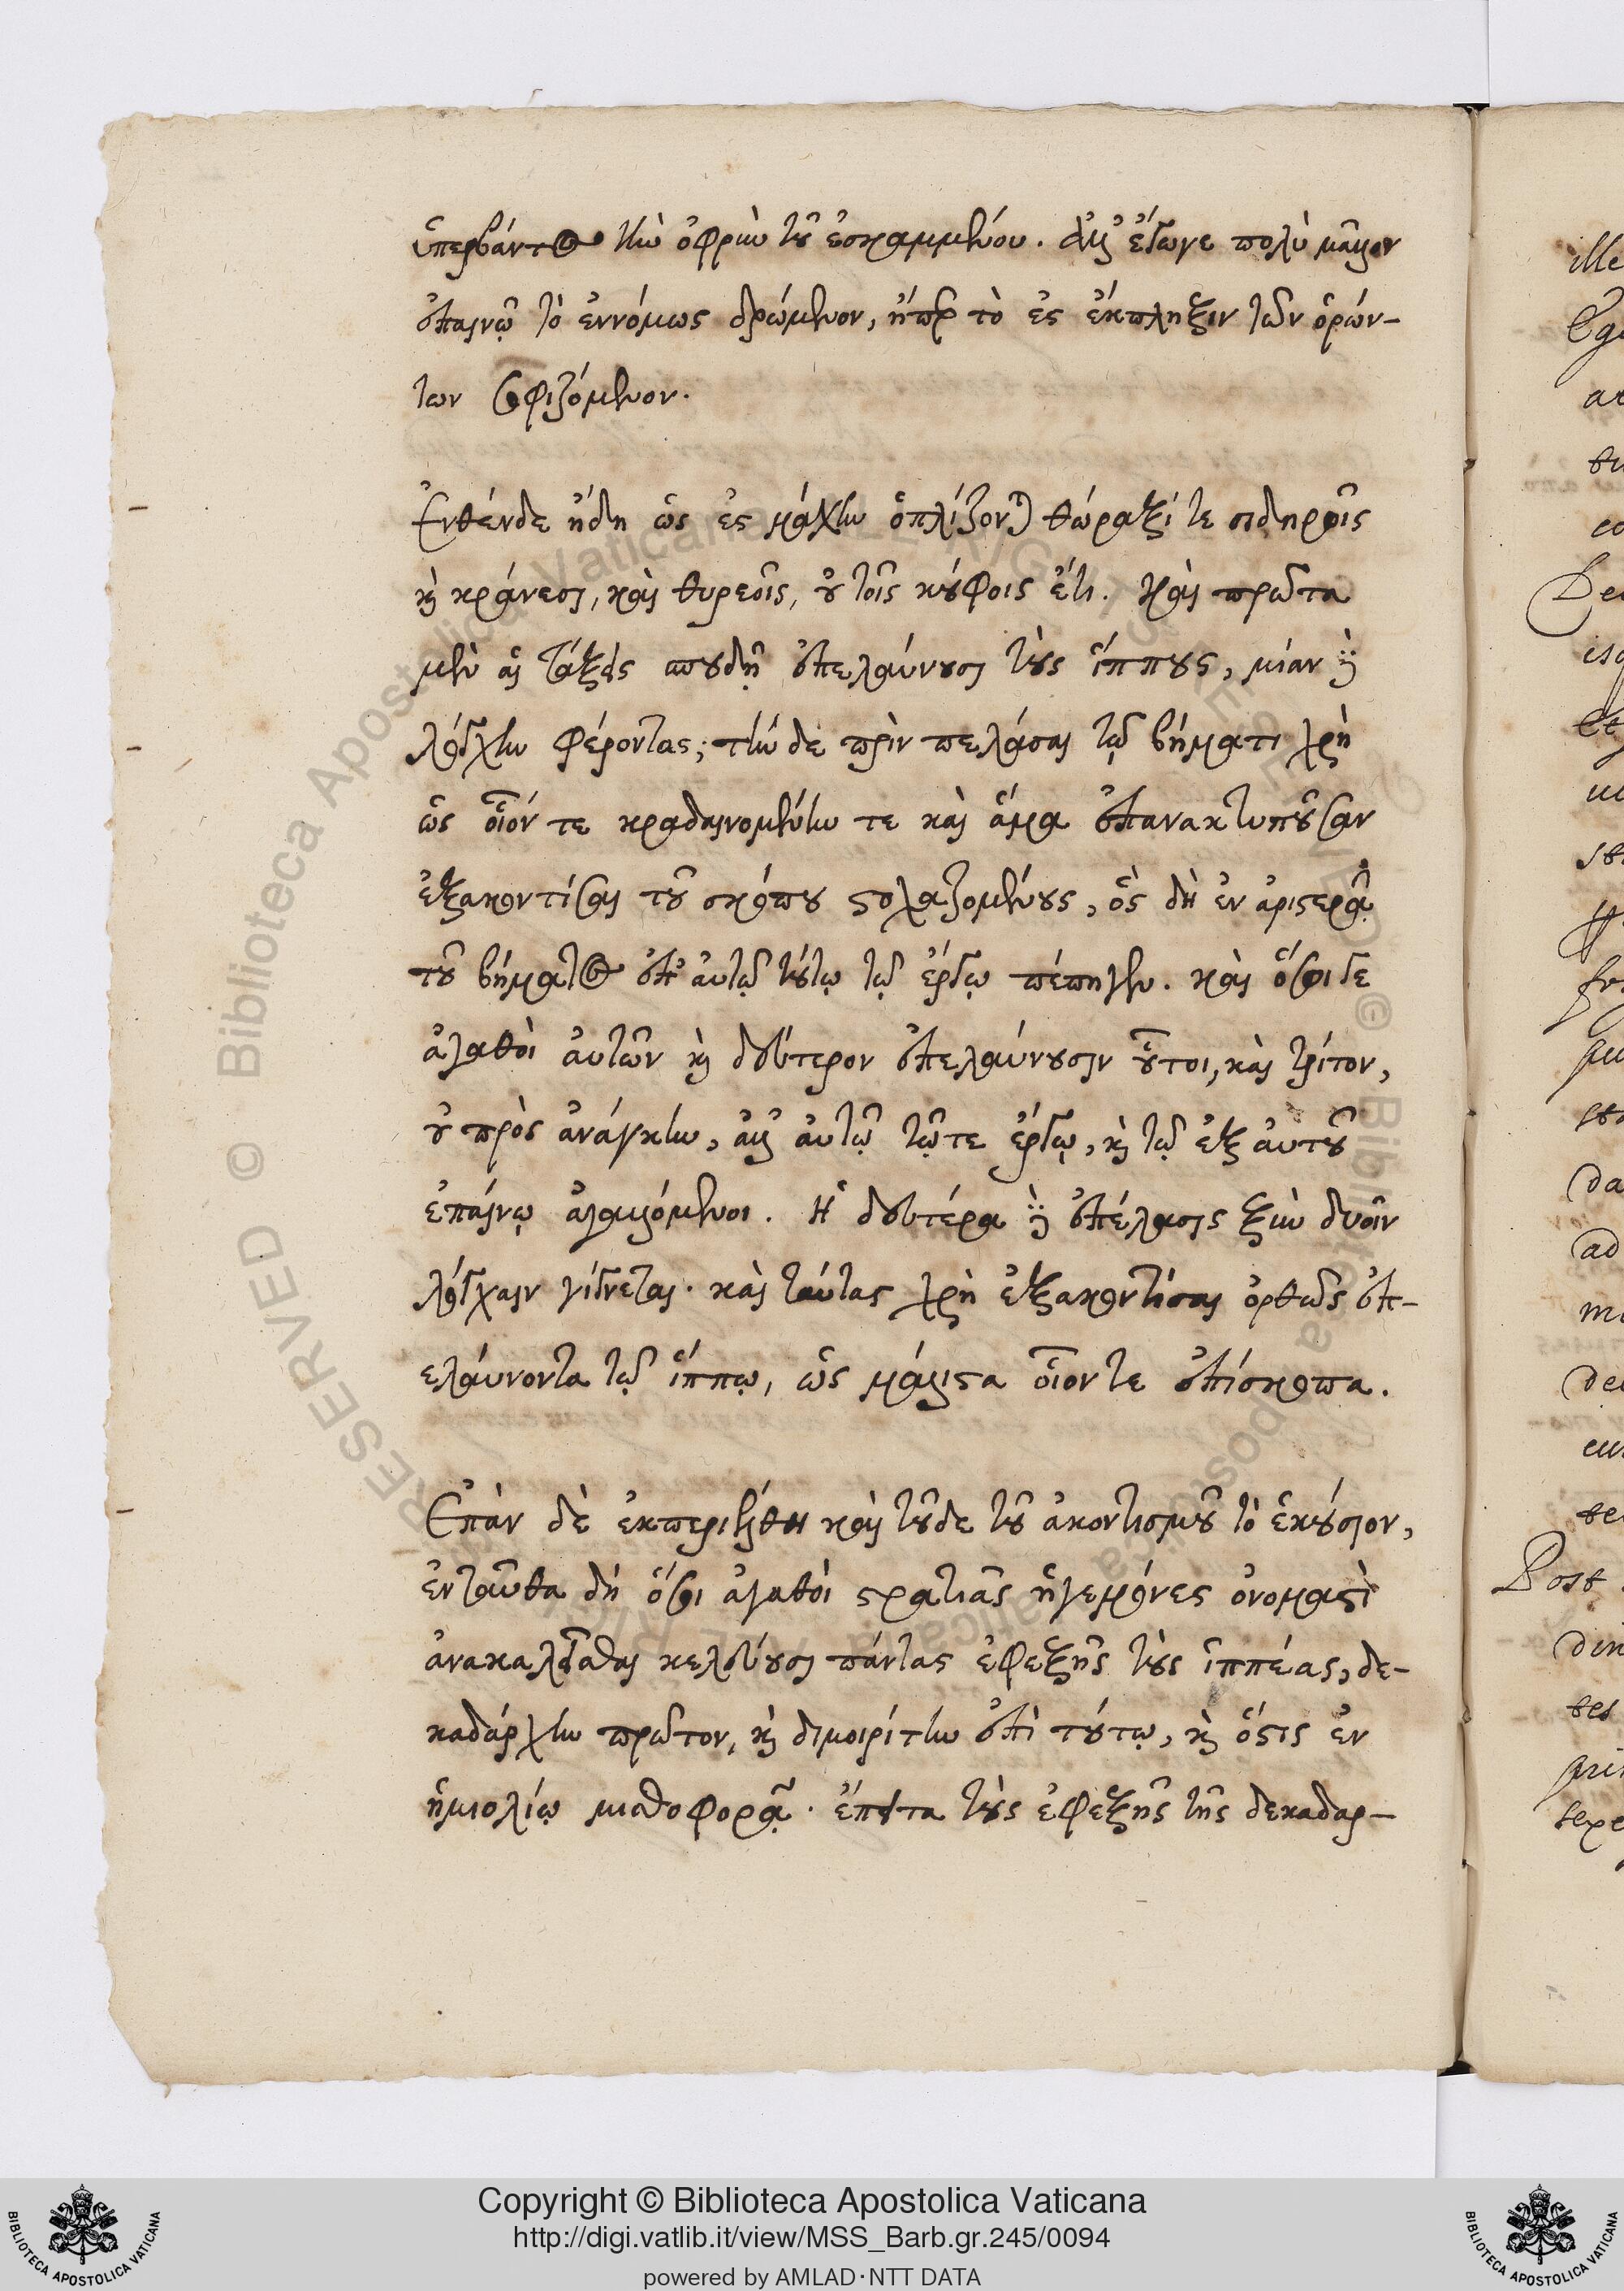 ὑπερβάντος τὴν ὀφρὺν τοῦ ἐσκαμμένου. ἀλλ' ἔγωγε πολὺ μᾶλλον
ἐπαινῶ τὸ ἐννόμως δρώμενον, ἤπερ τὸ ἐς ἔκπληξιν τῶν ὁρών-
των σοφιζόμενον.
Ἐνθένδε ἤδη ὡς ἐς μάχην ὁπλίζονται θώραξί τε σιδηροῖς
καὶ κράνεσι, καὶ θυρεοῖς, οὐ τοῖς κούφοις ἔτι. καὶ πρῶτα
μὲν αἱ τάξεις σπουδῇ ἐπελαύνουσι τοὺς ἵππους, μίαν δὲ
λόγχην φέροντας; τὴν δὲ πρὶν πελάσαι τῷ βήματι χρὴ
ὡς οἷόν τε κραδαινομένην τε καὶ ἅμα ἐπανακτυποῦσαν
ἐξακοντίσαι τοῦ σκόπου στοχαζομένους, ὃς δὴ ἐν ἀριστερᾷ
τοῦ βήματος ἐπ' αὐτῷ τούτῳ τῷ ἔργῳ πέπηγεν. καὶ ὅσοι δε
ἀγαθοὶ αὐτῶν καὶ δεύτερον ἐπελαύνουσιν οὗτοι, καὶ τρίτον,
οὐ πρὸς ἀνάγκην, ἀλλ' αὐτῷ τῷτε ἔργῳ, καὶ τῷ ἐξ αὐτοῦ
ἐπαίνῳ ἀγαλλόμενοι. Ἡ δευτέρα δὲ ἐπέλασις ξὺν δυοῖν
λόγχαιν γίγνεται· καὶ ταύτας χρὴ ἐξακοντίσαι ὀρθῶς ἐπ-
ελαύνοντα τῷ ἵππῳ, ὡς μάλιστα οἷον τε ἐπίσκοπα.
Ἐπὰν δὲ ἐκπεριέλθῃ καὶ τοῦδε τοῦ ἀκοντισμοῦ τὸ ἑκούσιον,
ἐνταῦθα δή ὅσοι ἀγαθοὶ στρατιᾶς ἡγεμόνες ὀνομαστὶ
ἀνακαλεῖσθαι κελεύουσι πάντας ἐφεξῆς τοὺς ἱππέας, δε-
καδάρχην πρῶτον, καὶ διμοιρίτην ἐπὶ τούτῳ, καὶ ὅστις ἐν
ἡμιολίῳ μισθοφορᾷ· ἔπειτα τοὺς ἐφεξῆς τῆς δεκαδαρ-
Copyright © Biblioteca Apostolica Vaticana
http://digi.vatlib.it/view/MSS_Barb.gr.245/0094
powered by AMLAD·NTT DATA